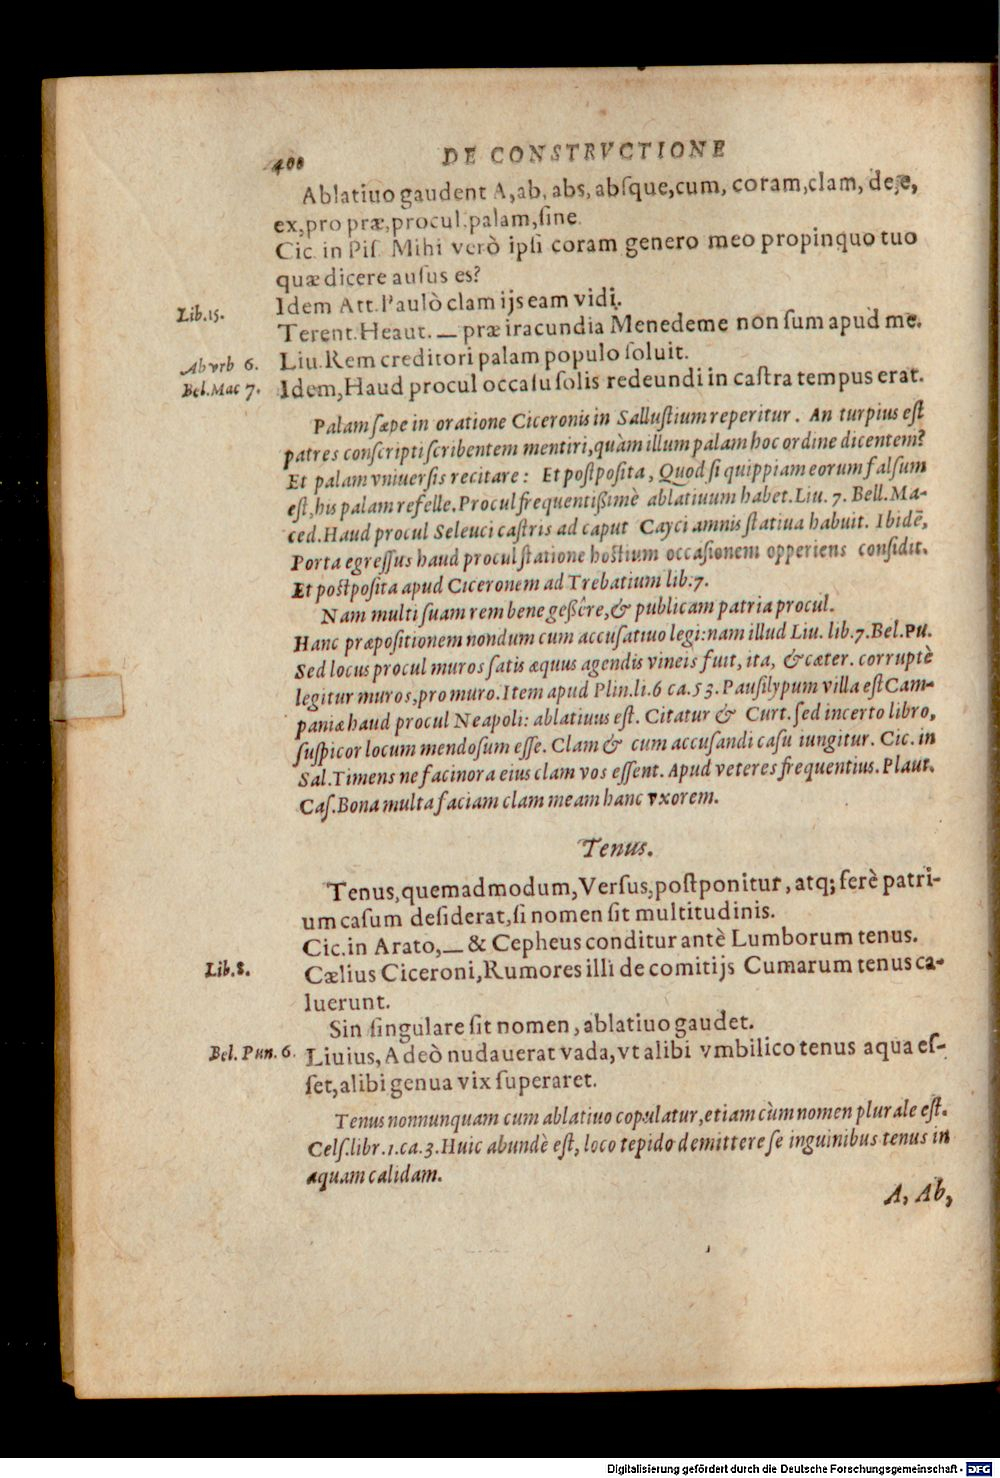 400 DE CONSTRVCTIONE
Ablatiuo gaudent A, ab, abs, absque, cum, coram, clam, de, e,
ex, pro præ, procul, palam, sine.
Cic. in Pis. Mihi verò ipsi coram genero meo propinquo tuo
quæ dicere ausus es?
Lib. 15. Idem Att. Paulò clam ijs eam vidi.
Terent. Heaut. — præ iracundia Menedeme non sum apud me.
Ab vrb 6. Liu. Rem creditori palam populo soluit.
Bel. Mac 7. Idem, Haud procul occasu solis redeundi in castra tempus erat.
Palam sæpe in oratione Ciceronis in Sallustium reperitur. An turpius est
patres conscripti scribentem mentiri, quàm illum palam hoc ordine dicentem?
Et palam vniuersis recitare: Et postposita, Quod si quippiam eorum falsum
est, his palam refelle. Procul frequentißimè ablatiuum habet. Liu. 7. Bell. Ma-
ced. Haud procul Seleuci castris ad caput Cayci amnis statiua habuit. Ibidē,
Porta egressus haud procul statione hostium occasionem opperiens consid it.
Et postposita apud Ciceronem ad Trebatium lib. 7.
Nam multi suam rem bene geßêre, & publicam patria procul.
Hanc præpositionem nondum cum accusatiuo legi: nam illud Liu. lib. 7. Bel. Pu.
Sed locus procul muros satis æquus agendis vineis fuit, ita, & cæter. corruptè
legitur muros, pro muro. Item apud Plin. li. 6 ca. 53. Pausilypum villa est Cam-
paniæ haud procul Neapoli: ablatiuus est. Citatur & Curt. sed incerto libro,
suspicor locum mendosum esse. Clam & cum accusandi casu iungitur. Cic. in
Sal. Timens ne facinora eius clam vos essent. Apud veteres frequentius. Plaut.
Cas. Bona multa faciam clam meam hanc vxorem.
Tenus.
Tenus, quemadmodum, Versus, postponitur, atq; ferè patri-
um casum desiderat, si nomen sit multitudinis.
Cic. in Arato, — & Cepheus conditur antè Lumborum tenus.
Lib. 8. Cælius Ciceroni, Rumores illi de comitijs Cumarum tenus ca-
luerunt.
Sin singulare sit nomen, ablatiuo gaudet.
Bel. Pun. 6. Liuius, Adeò nudauerat vada, vt alibi vmbilico tenus aqua es-
set, alibi genua vix superaret.
Tenus nonnunquam cum ablatiuo copulatur, etiam cùm nomen plurale est.
Cels. libr. 1. ca. 3. Huic abundè est, loco tepido demittere se inguinibus tenus in
aquam calidam.
A, Ab,
Digitalisierung gefördert durch die Deutsche Forschungsgemeinschaft - DFG